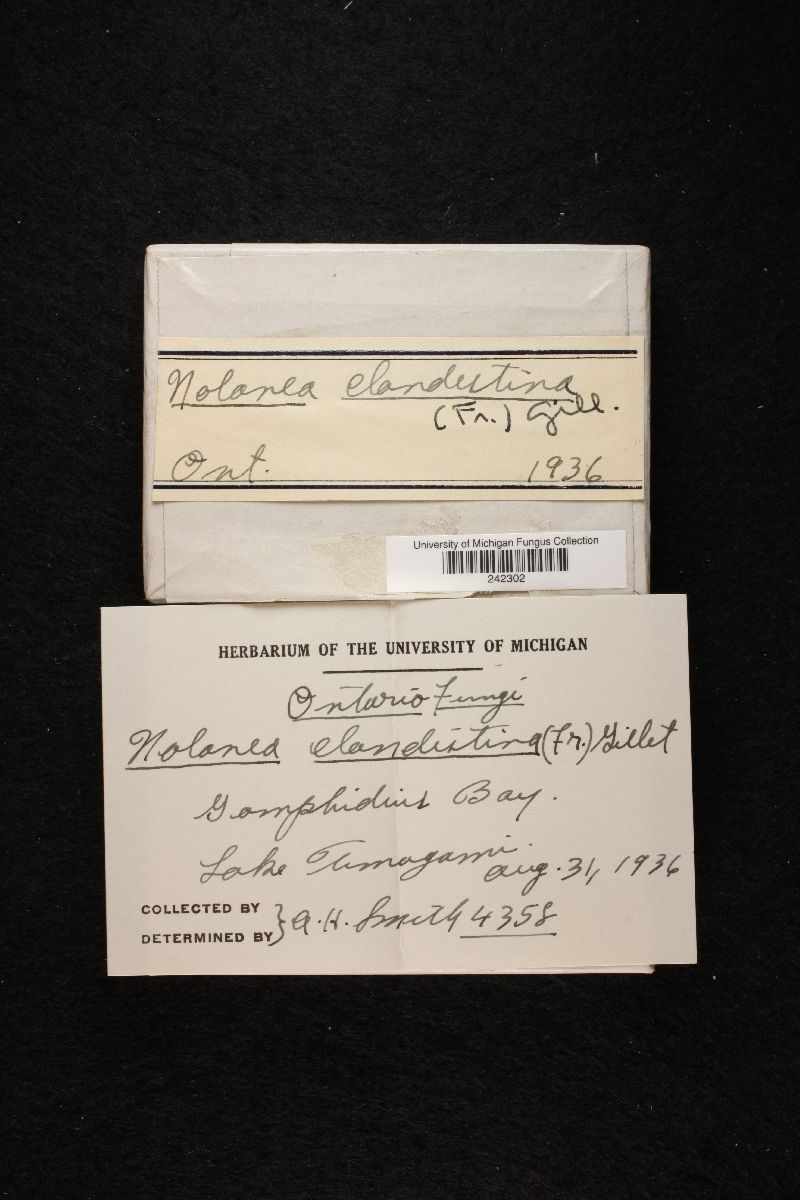 Nolanea clandestina
(Fr.) Gill.
Ont. 1936
University of Michigan Fungus Collection
242302
HERBARIUM OF THE UNIVERSITY OF MICHIGAN
Ontario Fungi
Nolanea clandestina (Fr.) Gillet
Gomphidius Bay.
Lake Timagami. Aug. 31, 1936
COLLECTED BY
DETERMINED BY } A. H. Smith 4358